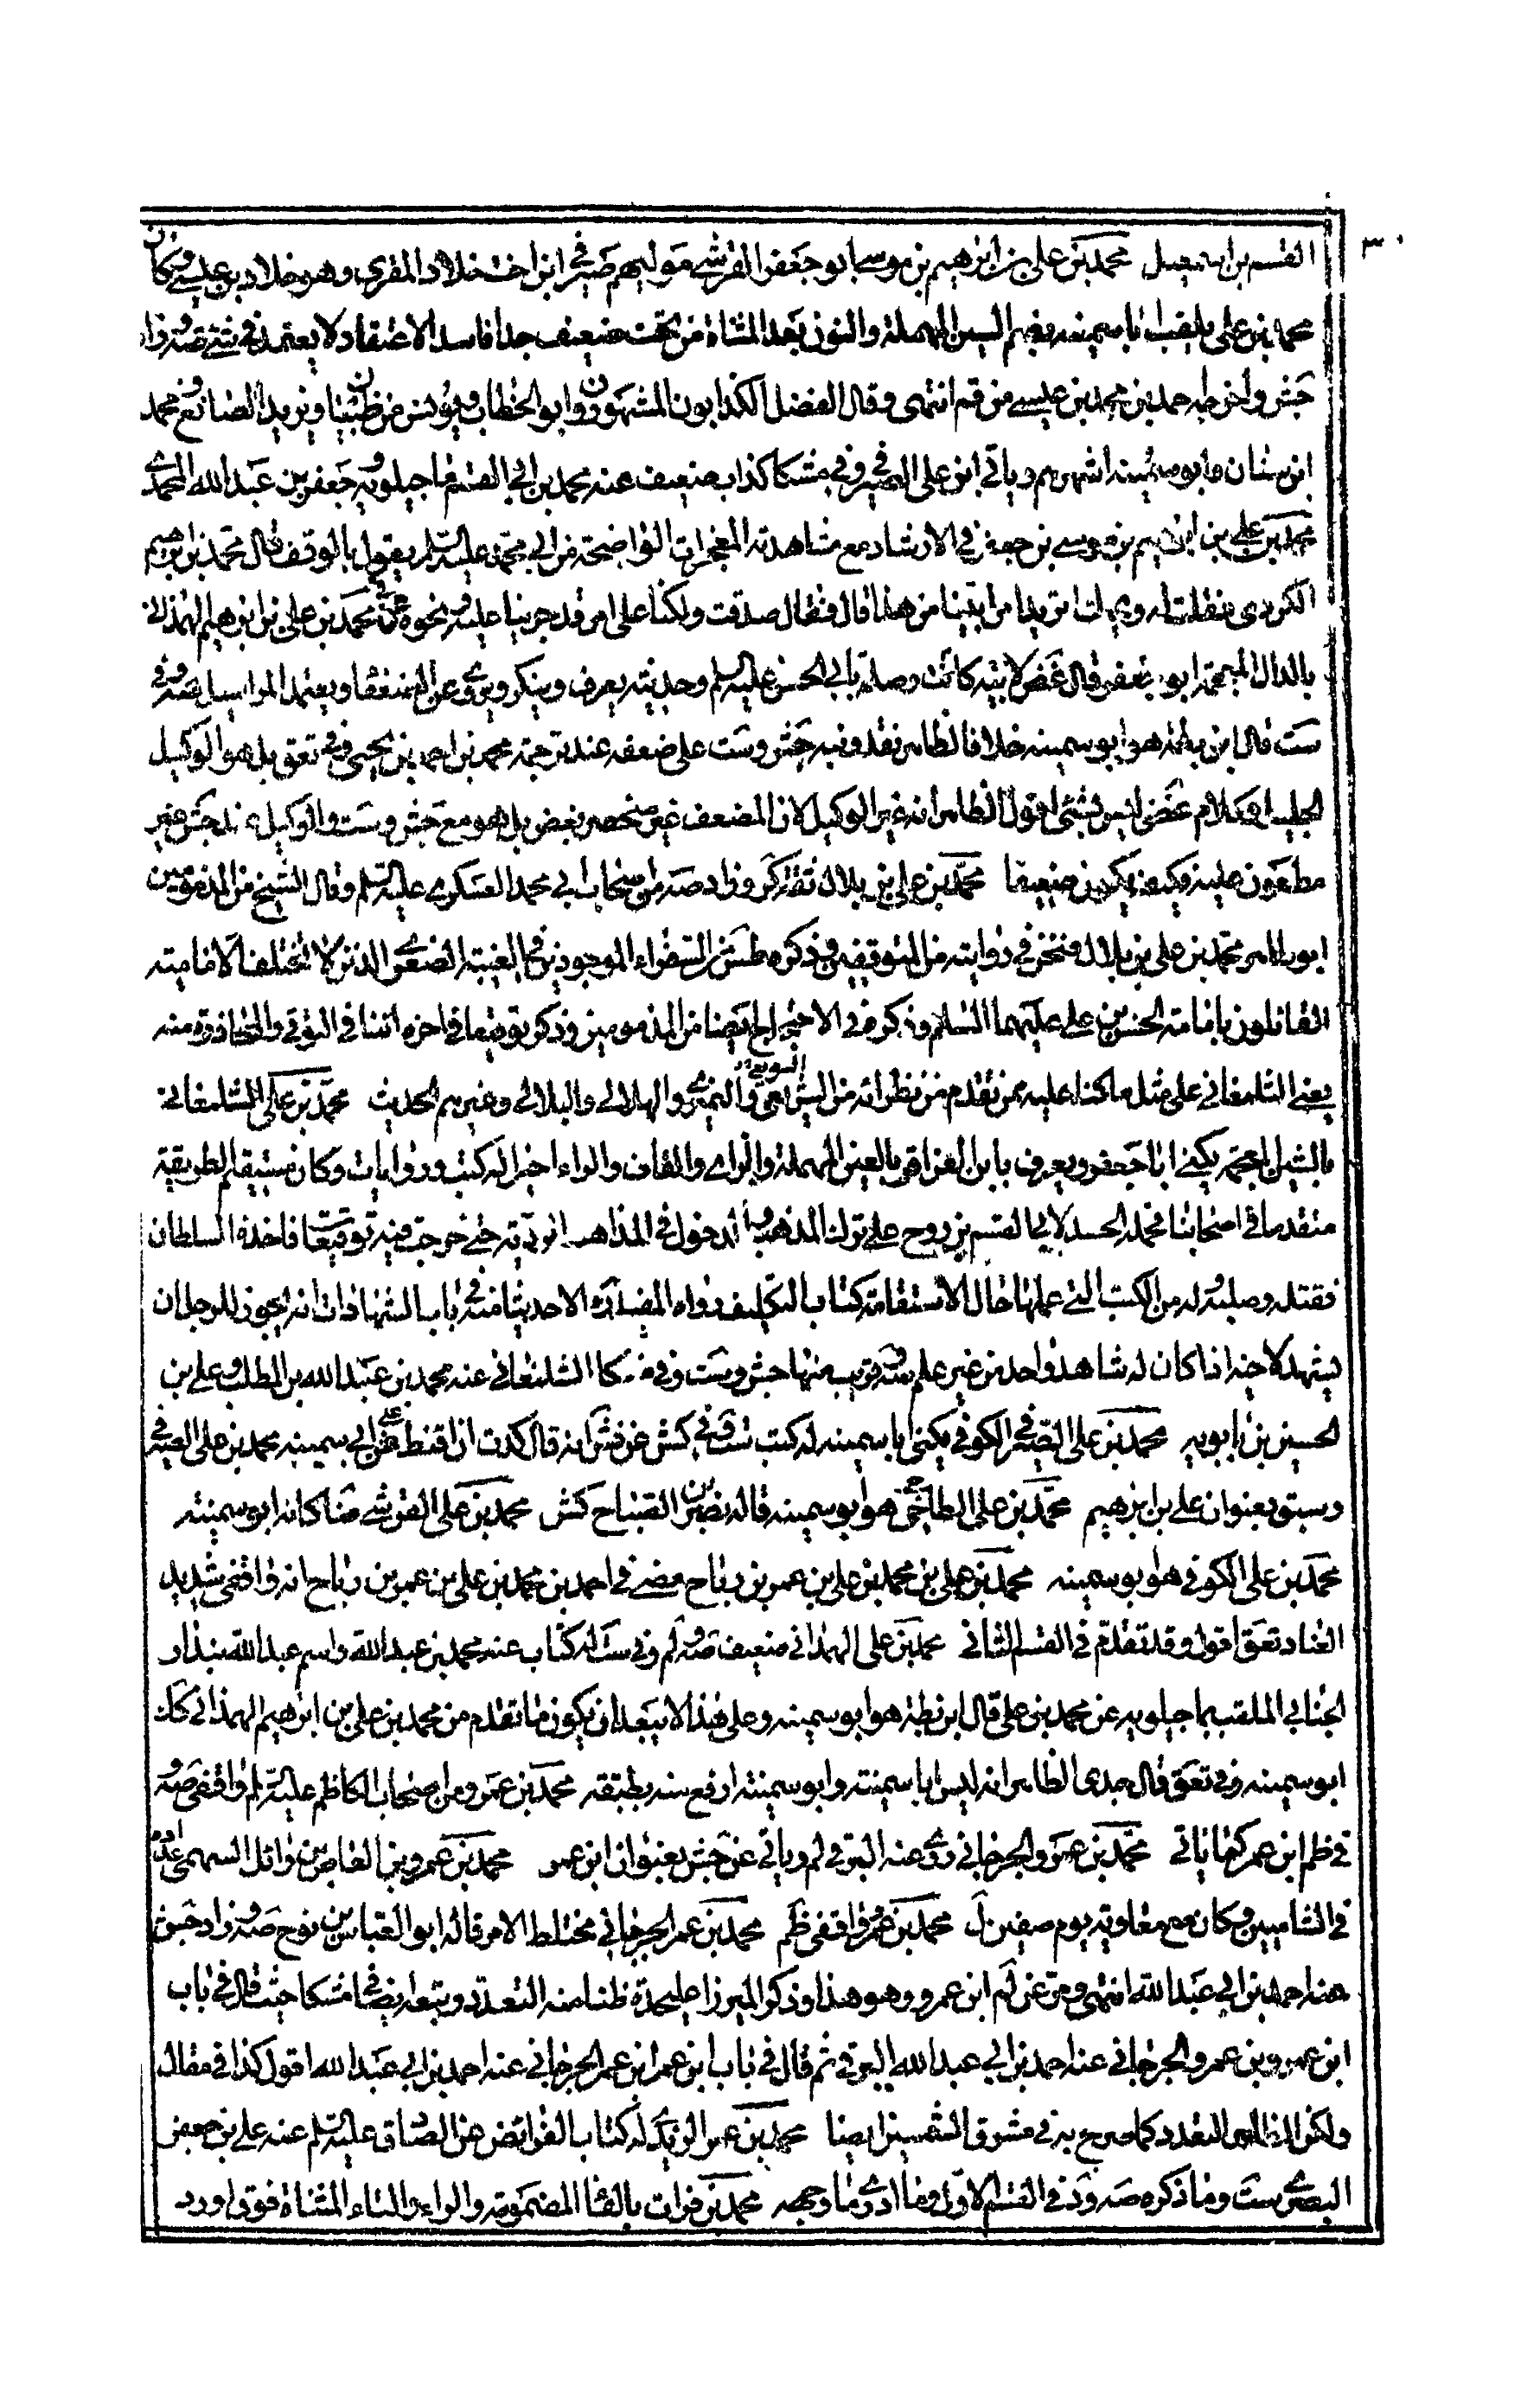 ٣٠
القسم بن اسمعيل محمد بن علي بن ابرهيم بن موسى ابو جعفر القرشي موليهم صيرفي ابن اخت خلاد المقري وهو خلاد بن عيسى وكان
محمد بن علي يلقب ابا سمينه بضم السين المهملة والنون بعد المثناة من تحت ضعيف جدا فاسد الاعتقاد لا يعتمد في شئ صه وزاد
جش واخرجه احمد بن محمد بن عيسى من قم انتهى وقال الفضل الكذابون المشهورون ابو الخطاب ويونس بن ظبيان ويزيد الصائغ ومحمد
ابن سنان وابو سمينه اشهرهم وياتي ابن علي الصيرفي وفي مشكا كذاب ضعيف عنه محمد بن ابي القسم ماجيلويه وجعفر بن عبد الله المحمدي
محمد بن علي بن ابرهيم بن موسى بن جعفر في الارشاد مع مشاهدته المعجزات الواضحة من ابي محمد عليه السلم يقول بالوقف قال محمد بن ابرهيم
الكردي فقلت له ويحك اتريد امرا ابين من هذا قال فقال صدقت ولكنا على امر قد جرينا عليه ونحوه في محمد بن علي بن ابرهيم الهمذاني
بالذال المعجمة ابو جعفر قال غض لابيه كانت وصلة بابي الحسن عليه السلم وحديثه يعرف وينكر ويروي عن الضعفا ويعتمد المراسيل صه وفي
ست قال ابن بطه هو ابو سمينه خلافا لظاهر نقد وتبه جش وست على ضعفه عند ترجمة محمد بن احمد بن يحيى وفي تعق بل هو الوكيل
الجليل وكلام غض ليس بشئ اقول الظاهر انه غير الوكيل لان المضعف غير منحصر بغض بل هو مع جش وست والوكيل عند جش غير
مطعون عليه فكيف يكون ضعيفا محمد بن علي بن بلال ثقة كر وزاد صه من اصحاب ابي محمد العسكري عليه السلم وقال الشيخ من المذمومين
ابو طاهر محمد بن علي بن بلال فنحن في روايته من المتوقفين وذكره طس من السفراء الموجودين في الغيبة الصغرى الذين لا تختلف الامامية
القائلون بامامة الحسن بن علي عليهما السلام وذكره في الاحتجاج ايضا من المذمومين وذكر توقيعا في اخره اننا في التوقي والمحاذرة منه
يعني الشلمغاني على مثل ما كنا عليه ممن تقدم من نظرائه من الشريعي والنميري والهلالي والبلالي وغيرهم الحديث محمد بن علي الشلمغاني
بالشين المعجمة يكنى ابا جعفر ويعرف بابن العزاقر بالعين المهملة والزاي والقاف والراء اخيرا له كتب وروايات وكان مستقيم الطريقة
متقدما في اصحابنا فحمله الحسد لابي القسم بن روح على ترك المذهب والدخول في المذاهب الردية حتى خرجت فيه توقيعات فاخذه السلطان
فقتله وصلبه وله من الكتب التي عملها حال الاستقامة كتاب التكليف رواه المفيد ره الا حديثا منه في باب الشهادات انه يجوز للرجل ان
يشهد لاخيه اذا كان له شاهد واحد من غير علم صه وقريب منها جش وست وفي مشكا الشلمغاني عنه محمد بن عبد الله بن المطلب وعلي بن
الحسين بن بابويه محمد بن علي الصيرفي الكوفي يكنى ابا سمينه له كتب ست وفي كش عن فش انه قال كدت ان اقنط على ابي سمينه محمد بن علي الصيرفي
وسبق بعنوان علي بن ابرهيم محمد بن علي الطاحي هو ابو سمينه قاله نصر بن الصباح كش محمد بن علي القرشي ضا كانه ابو سمينه
محمد بن علي الكوفي هو ابو سمينه محمد بن علي بن محمد بن علي بن عمر بن رباح مضى في احمد بن محمد بن علي بن عمر بن رباح انه واقفي شديد
العناد تعق اقول وقد تقدم في القسم الثاني محمد بن علي الهمذاني ضعيف صه ولم وفي ست له كتاب عنه محمد بن عبد الله واسم عبد الله بندار
الجنابي الملقب بماجيلويه عن محمد بن علي قال ابن بطة هو ابو سمينه وعلى هذا لا يبعد ان يكون ما تقدم من محمد بن علي بن ابرهيم الهمذاني كان
ابو سمينه وفي تعق قال جدي الظاهر انه ليس ابا سمينته وابو سمينته ارفع منه بطبقته محمد بن عمرو من اصحاب الكاظم عليه السلم واقفي صه و
في ظم ابن عمر كما ياتي محمد بن عمرو الجرجاني روى عنه البرقي لم وياتي عن جش بعنوان ابن عمر محمد بن عمرو بن العاص بن وائل السهمي عداده
في الشاميين وكان مع معاوية يوم صفين ل محمد بن عمر واقفي ظم محمد بن عمر الجرجاني مختلط الامر قاله ابو العباس بن نوح صه وزاد جش
عنه احمد بن ابي عبد الله انتهى ومر عن لم ابن عمرو وهو هذا وذكر الميرزا على حدة ظنا منه التعدد وتبعه ايضا في مشكا حيث قال في باب
ابن عمرو بن عمرو الجرجاني عنه احمد بن ابي عبد الله البرقي ثم قال في باب ابن عمر ابن عمر الجرجاني عنه احمد بن ابي عبد الله اقول كذا في مقال
ولكن الظاهر التعدد كما صرح به في مشرق الشمسين ايضا محمد بن عمر الزيدي له كتاب الفرائض عن الصادق عليه السلم عنه علي بن جعفر
البصري ست وما ذكره صه ود في القسم الاول وما ادري ما وجهه محمد بن فرات بالفا المضمومة والراء والتاء المثناة فوق اورد